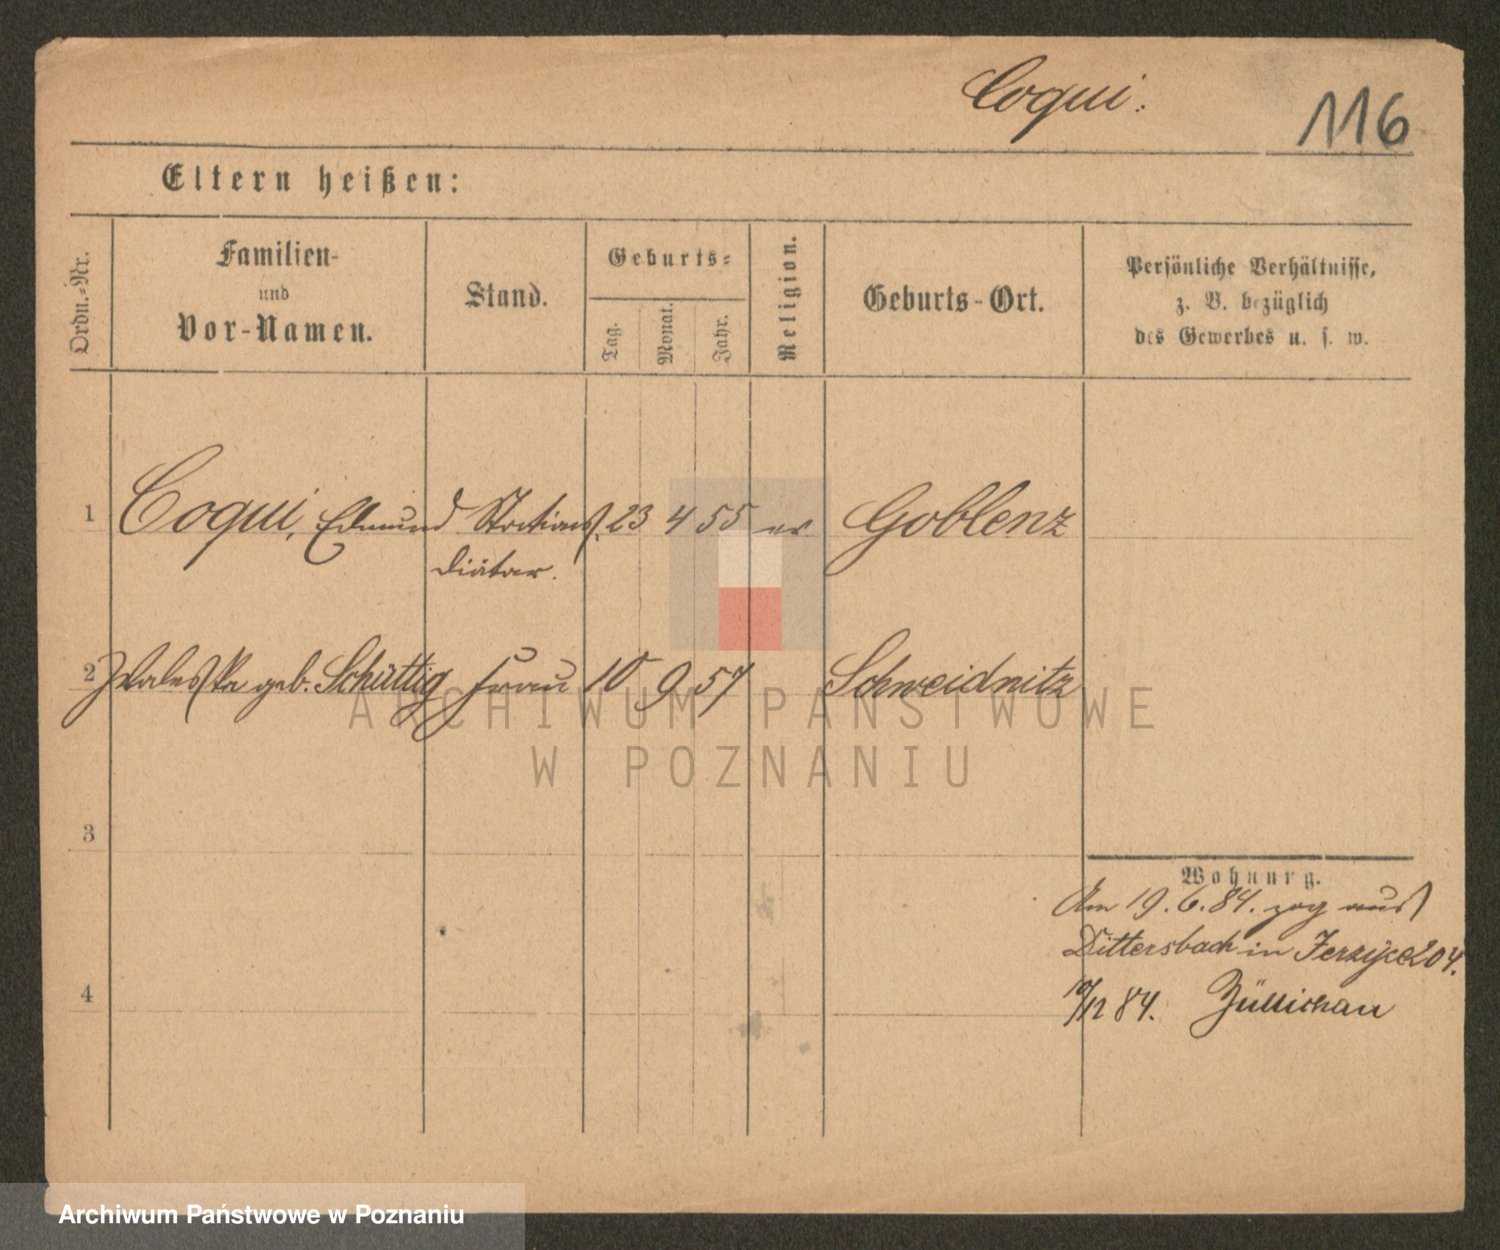 Coqui.
116
Eltern heißen:
Ordn.-Nr.
Familien-
und
Vor-Namen.
Stand.
Geburts-
Tag.
Monat.
Jahr.
Religion.
Geburts-Ort.
Persönliche Verhältnisse,
z. B. bezüglich
des Gewerbes u. s. w.
1 Coqui, Edmund Stations 23 4 55 ev Coblenz
Diätar.
2 Valeska geb. Schüttig Frau 10 9 57 Schweidnitz
ARCHIWUM PAŃSTWOWE
W POZNANIU
3
Wohnung.
Am 19.6.84. zog aus
Dittersbach in Jerzyce 204.
4
/12 84. Züllichau
Archiwum Państwowe w Poznaniu